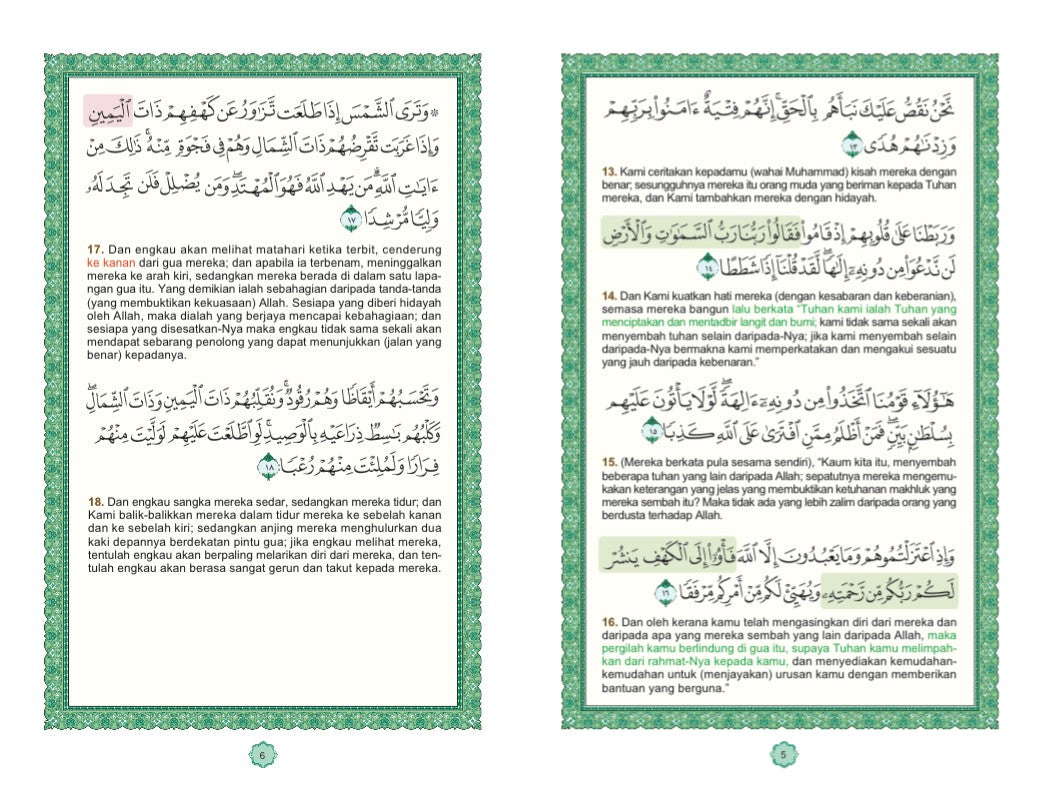 نَّحْنُ نَقُصُّ عَلَيْكَ نَبَأَهُم بِالْحَقِّ ۚ إِنَّهُمْ فِتْيَةٌ ءَامَنُوا۟ بِرَبِّهِمْ
وَزِدْنَـٰهُمْ هُدًى ١٣
13. Kami ceritakan kepadamu (wahai Muhammad) kisah mereka dengan
benar; sesungguhnya mereka itu orang muda yang beriman kepada Tuhan
mereka, dan Kami tambahkan mereka dengan hidayah.
وَرَبَطْنَا عَلَىٰ قُلُوبِهِمْ إِذْ قَامُوا۟ فَقَالُوا۟ رَبُّنَا رَبُّ السَّمَـٰوَٰتِ وَالْأَرْضِ
لَن نَّدْعُوَا۟ مِن دُونِهِۦٓ إِلَـٰهًا ۖ لَّقَدْ قُلْنَآ إِذًا شَطَطًا ١٤
14. Dan Kami kuatkan hati mereka (dengan kesabaran dan keberanian),
semasa mereka bangun lalu berkata “Tuhan kami ialah Tuhan yang
menciptakan dan mentadbir langit dan bumi; kami tidak sama sekali akan
menyembah tuhan selain daripada-Nya; jika kami menyembah selain
daripada-Nya bermakna kami memperkatakan dan mengakui sesuatu
yang jauh daripada kebenaran.”
هَـٰٓؤُلَآءِ قَوْمُنَا اتَّخَذُوا۟ مِن دُونِهِۦٓ ءَالِهَةً ۖ لَّوْلَا يَأْتُونَ عَلَيْهِم
بِسُلْطَـٰنٍۭ بَيِّنٍ ۖ فَمَنْ أَظْلَمُ مِمَّنِ افْتَرَىٰ عَلَى اللَّهِ كَذِبًا ١٥
15. (Mereka berkata pula sesama sendiri), “Kaum kita itu, menyembah
beberapa tuhan yang lain daripada Allah; sepatutnya mereka mengemu-
kakan keterangan yang jelas yang membuktikan ketuhanan makhluk yang
mereka sembah itu? Maka tidak ada yang lebih zalim daripada orang yang
berdusta terhadap Allah.
وَإِذِ اعْتَزَلْتُمُوهُمْ وَمَا يَعْبُدُونَ إِلَّا اللَّهَ فَأْوُۥٓا۟ إِلَى الْكَهْفِ يَنشُرْ
لَكُمْ رَبُّكُم مِّن رَّحْمَتِهِۦ وَيُهَيِّئْ لَكُم مِّنْ أَمْرِكُم مِّرْفَقًا ١٦
16. Dan oleh kerana kamu telah mengasingkan diri dari mereka dan
daripada apa yang mereka sembah yang lain daripada Allah, maka
pergilah kamu berlindung di gua itu, supaya Tuhan kamu melimpah-
kan dari rahmat-Nya kepada kamu, dan menyediakan kemudahan-
kemudahan untuk (menjayakan) urusan kamu dengan memberikan
bantuan yang berguna.”
5
۞ وَتَرَى الشَّمْسَ إِذَا طَلَعَت تَّزَٰوَرُ عَن كَهْفِهِمْ ذَاتَ الْيَمِينِ
وَإِذَا غَرَبَت تَّقْرِضُهُمْ ذَاتَ الشِّمَالِ وَهُمْ فِى فَجْوَةٍ مِّنْهُ ۚ ذَٰلِكَ مِنْ
ءَايَـٰتِ اللَّهِ ۗ مَن يَهْدِ اللَّهُ فَهُوَ الْمُهْتَدِ ۖ وَمَن يُضْلِلْ فَلَن تَجِدَ لَهُۥ
وَلِيًّا مُّرْشِدًا ١٧
17. Dan engkau akan melihat matahari ketika terbit, cenderung
ke kanan dari gua mereka; dan apabila ia terbenam, meninggalkan
mereka ke arah kiri, sedangkan mereka berada di dalam satu lapa-
ngan gua itu. Yang demikian ialah sebahagian daripada tanda-tanda
(yang membuktikan kekuasaan) Allah. Sesiapa yang diberi hidayah
oleh Allah, maka dialah yang berjaya mencapai kebahagiaan; dan
sesiapa yang disesatkan-Nya maka engkau tidak sama sekali akan
mendapat sebarang penolong yang dapat menunjukkan (jalan yang
benar) kepadanya.
وَتَحْسَبُهُمْ أَيْقَاظًا وَهُمْ رُقُودٌ ۚ وَنُقَلِّبُهُمْ ذَاتَ الْيَمِينِ وَذَاتَ الشِّمَالِ ۖ
وَكَلْبُهُم بَـٰسِطٌ ذِرَاعَيْهِ بِالْوَصِيدِ ۚ لَوِ اطَّلَعْتَ عَلَيْهِمْ لَوَلَّيْتَ مِنْهُمْ
فِرَارًا وَلَمُلِئْتَ مِنْهُمْ رُعْبًا ١٨
18. Dan engkau sangka mereka sedar, sedangkan mereka tidur; dan
Kami balik-balikkan mereka dalam tidur mereka ke sebelah kanan
dan ke sebelah kiri; sedangkan anjing mereka menghulurkan dua
kaki depannya berdekatan pintu gua; jika engkau melihat mereka,
tentulah engkau akan berpaling melarikan diri dari mereka, dan ten-
tulah engkau akan berasa sangat gerun dan takut kepada mereka.
6